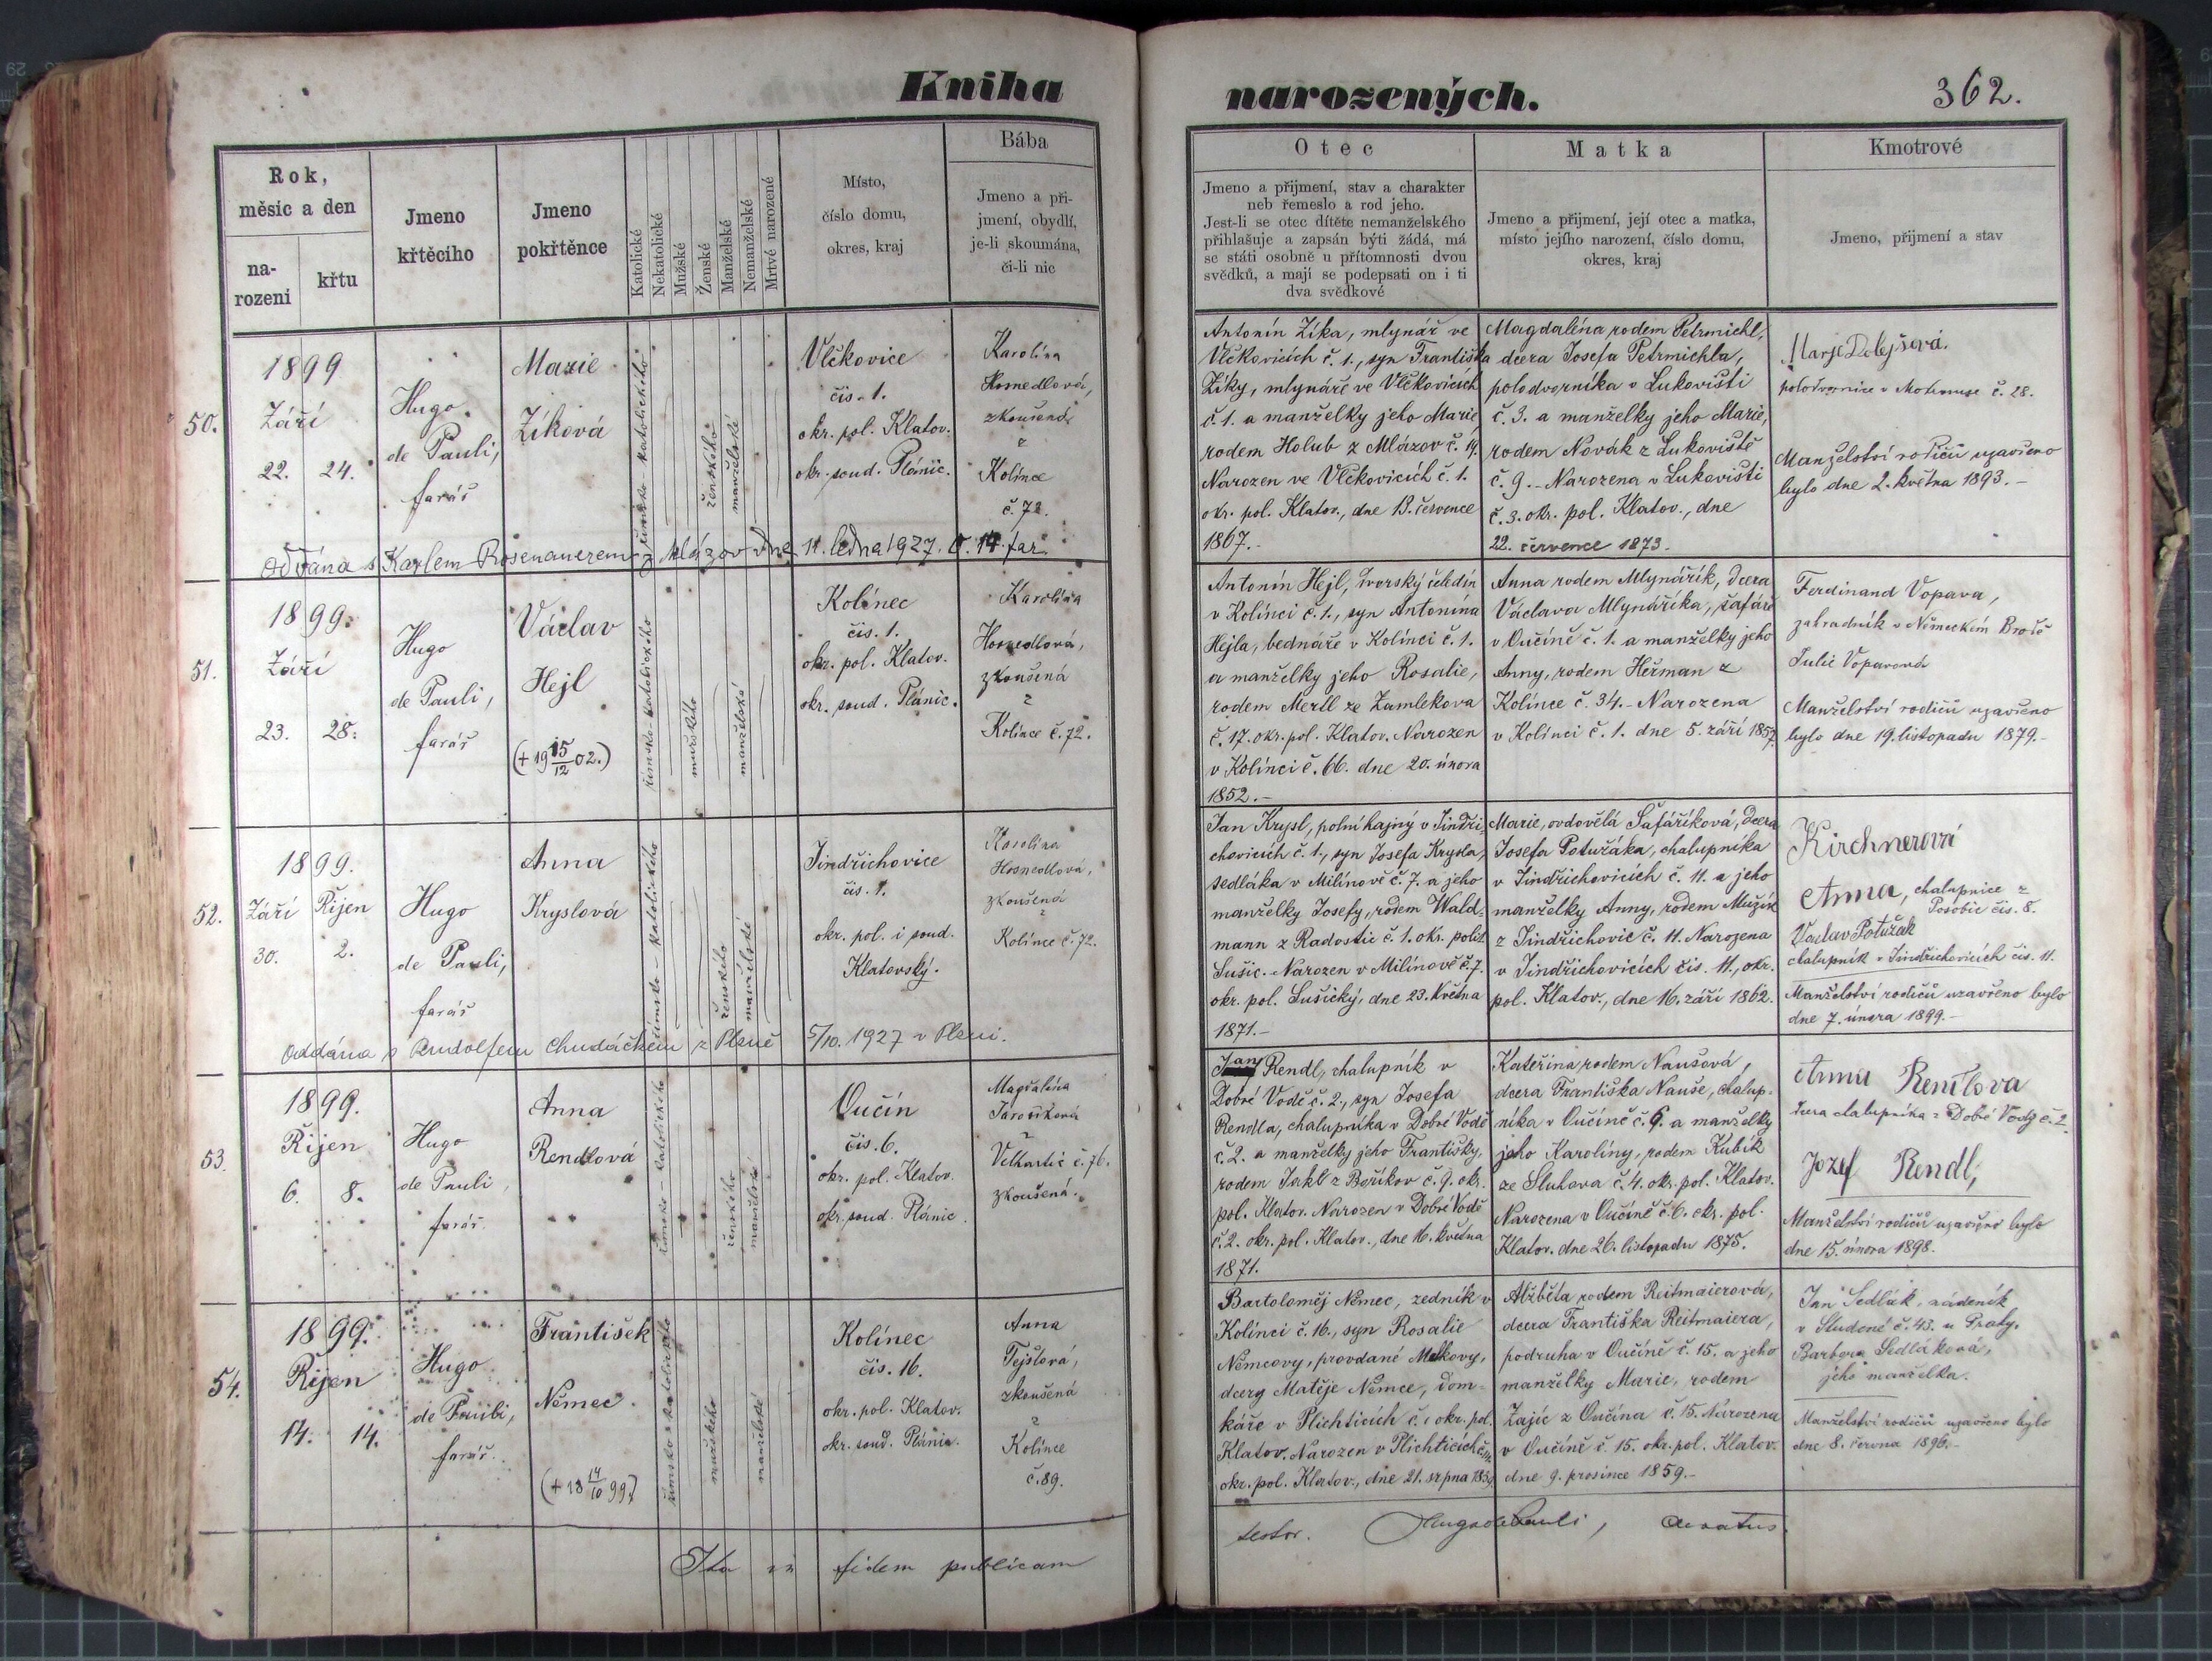 Kniha
narozených.
362.
Rok,
měsíc a den
na-
rozeni
křtu
Jmeno
křtěcího
Jmeno
pokřtěnce
Katolické
Nekatolické
Mužské
Ženské
Manželské
Nemanželské
Mrtvé narozené
Místo,
číslo domu,
okres, kraj
Bába
Jmeno a při-
jmení, obydlí,
je-li skoumána,
či-li nic
Otec
Jmeno a přijmení, stav a charakter
neb řemeslo a rod jeho.
Jest-li se otec dítěte nemanželského
přihlašuje a zapsán býti žádá, má
se státi osobně u přítomnosti dvou
svědků, a mají se podepsati on i ti
dva svědkové
Matka
Jmeno a přijmení, její otec a matka,
místo jejího narození, číslo domu,
okres, kraj
Kmotrové
Jmeno, přijmení a stav
50.
1899
Září
22. 24.
Hugo
de Pauli,
farář
Marie
Zíková
římsko-katolického
ženského
manželské
Vlčkovice
čís. 1.
okr. pol. Klatov.
okr. soud. Plánic.
Karolina
Hosnedlová,
zkoušená
z
Kolince
č. 72.
Antonín Zíka, mlynář ve
Vlčkovicích č. 1., syn Františka
Zíky, mlynáře ve Vlčkovicích
č. 1. a manželky jeho Marie,
rodem Holub z Mlázov č. 19.
Narozen ve Vlčkovicích č. 1.
okr. pol. Klatov., dne 13. července
1867.-
Magdaléna, rodem Petrmichl,
dcera Josefa Petrmichla,
polodvorníka v Lukovišti
č. 3. a manželky jeho Marie,
rodem Novák z Lukoviště
č. 9.- Narozena v Lukovišti
č. 3. okr. pol. Klatov., dne
22. července 1873.
Marje Dolejšová.
polodvornice v č. 28.
Manželství rodičů uzavřeno
bylo dne 2. května 1893.-
Oddána s Karlem Rosenauerem z Mlázov dne 11. ledna 1927. far.
51.
1899.
Září
23. 28.
Hugo
de Pauli,
farář
Václav
Hejl
(+ 19 15/12 02.)
římsko-katolického
mužského
manželské
Kolínec
čís. 1.
okr. pol. Klatov.
okr. soud. Plánic.
Karolina
Hosnedlová,
zkoušená
z
Kolince č. 72.
Antonín Hejl, dvorský čeledín
v Kolínci č. 1., syn Antonína
Hejla, bednáře v Kolínci č. 1.
a manželky jeho Rosalie,
rodem Mertl ze Zamlekova
č. 17. okr. pol. Klatov. Narozen
v Kolínci č. 66. dne 20. února
1852.-
Anna rodem Mlynářík, dcera
Václava Mlynáříka, šafáře
v Oučíně č. 1. a manželky jeho
Anny, rodem Heřman z
Kolince č. 34.- Narozena
v Kolínci č. 1. dne 5. září 1857.
Ferdinand Vopava,
zahradník v Německém Brodě
Julie Vopavová
Manželství rodičů uzavřeno
bylo dne 19. listopadu 1879.-
52.
1899.
Září Říjen
30. 2.
Hugo
de Pauli,
farář
Anna
Kryslová
římsko-katolického
ženského
manželské
Jindřichovice
čís. 1.
okr. pol. i soud.
Klatovský.
Karolina
Hosnedlová,
zkoušená
z
Kolince č. 72.
Jan Krysl, polní hajný v Jindři-
chovicích č. 1., syn Josefa Krysla,
sedláka v Milínově č. 7. a jeho
manželky Josefy, rodem Wald-
mann z Radostic č. 1. okr. polit.
Sušic. Narozen v Milínově č. 7.
okr. pol. Sušický, dne 23. května
1871.-
Marie, ovdovělá Šafaříková, dcera
Josefa Potužáka, chalupníka
v Jindřichovicích č. 11. a jeho
manželky Anny, rodem Mužík
z Jindřichovic č. 11. Narozena
v Jindřichovicích čís. 11., okr.
pol. Klatov., dne 16. září 1862.
Kirchnerová
Anna, chalupnice z
Posobic čís. 8.
Václav Potužák
chalupník v Jindřichovicích čís. 11.
Manželství rodičů uzavřeno bylo
dne 7. února 1899.-
Oddána s Rudolfem Chudáčkem z Plzně 5/10. 1927 v Plzni.
53.
1899.
Říjen
6. 8.
Hugo
de Pauli,
farář.
Anna
Rendlová
římsko-katolického
ženského
manželské
Oučín
čís. 6.
okr. pol. Klatov.
okr. soud. Plánic.
Magdaléna
Jarošíková
z
Velhartic č. 76.
zkoušená.
Jan Rendl, chalupník v
Dobré Vodě č. 2., syn Josefa
Rendla, chalupníka v Dobré Vodě
č. 2. a manželky jeho Františky,
rodem Jakl z Bořikov č. 9. okr.
pol. Klatov. Narozen v Dobré Vodě
č. 2. okr. pol. Klatov., dne 16. května
1871.
Kateřina, rodem Naušová,
dcera Františka Nauše, chalup-
níka v Oučíně č. 6. a manželky
jeho Karolíny, rodem Kubík
ze Sluhova č. 4. okr. pol. Klatov.
Narozena v Oučíně č. 6. okr. pol.
Klatov. dne 26. listopadu 1875.
Anna Rendlova
dcera chalupníka z Dobré Vody č. 2.
Jozef Rendl,
Manželství rodičů uzavřeno bylo
dne 15. února 1898.
54.
1899.
Říjen
14. 14.
Hugo
de Pauli,
farář.
František
Němec.
(+ 18 14/10 99.)
římsko-katolického
mužského
manželské
Kolínec
čís. 16.
okr. pol. Klatov.
okr. soud. Plánic.
Anna
Tejslová,
zkoušená
z
Kolince
č. 89.
Bartoloměj Němec, zedník v
Kolínci č. 16., syn Rosalie
Němcovy, provdané
dcery Matěje Němce, dom-
káře v Plichticích č. 1 okr. pol.
Klatov. Narozen v Plichticích
okr. pol. Klatov., dne 21. srpna
Alžběta rodem Reitmaierová,
dcera Františka Reitmaiera,
podruha v Oučíně č. 15. a jeho
manželky Marie, rodem
Zajíc z Oučína č. 15. Narozena
v Oučíně č. 15. okr. pol. Klatov.
dne 9. prosince 1859.-
Jan Sedlák, nádeník
v Studené č. 43. u Prahy.
Barbora Sedláková,
jeho manželka.
Manželství rodičů uzavřeno bylo
dne 8. června 1896.-
Ita in fidem publicam
testor. Hugo de Pauli, curatus.